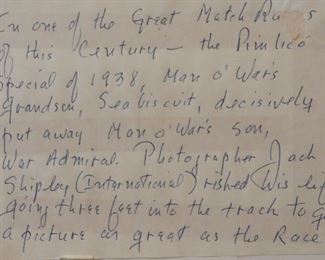 In one of the Great Match Races
of this Century — the Pimlico
Special of 1938, Man o' War's
Grandson, Seabiscuit, decisively
put away Man o' War's Son,
War Admiral. Photographer Jack
Shipley (International) risked his life
going three feet into the track to get
a picture as great as the Race